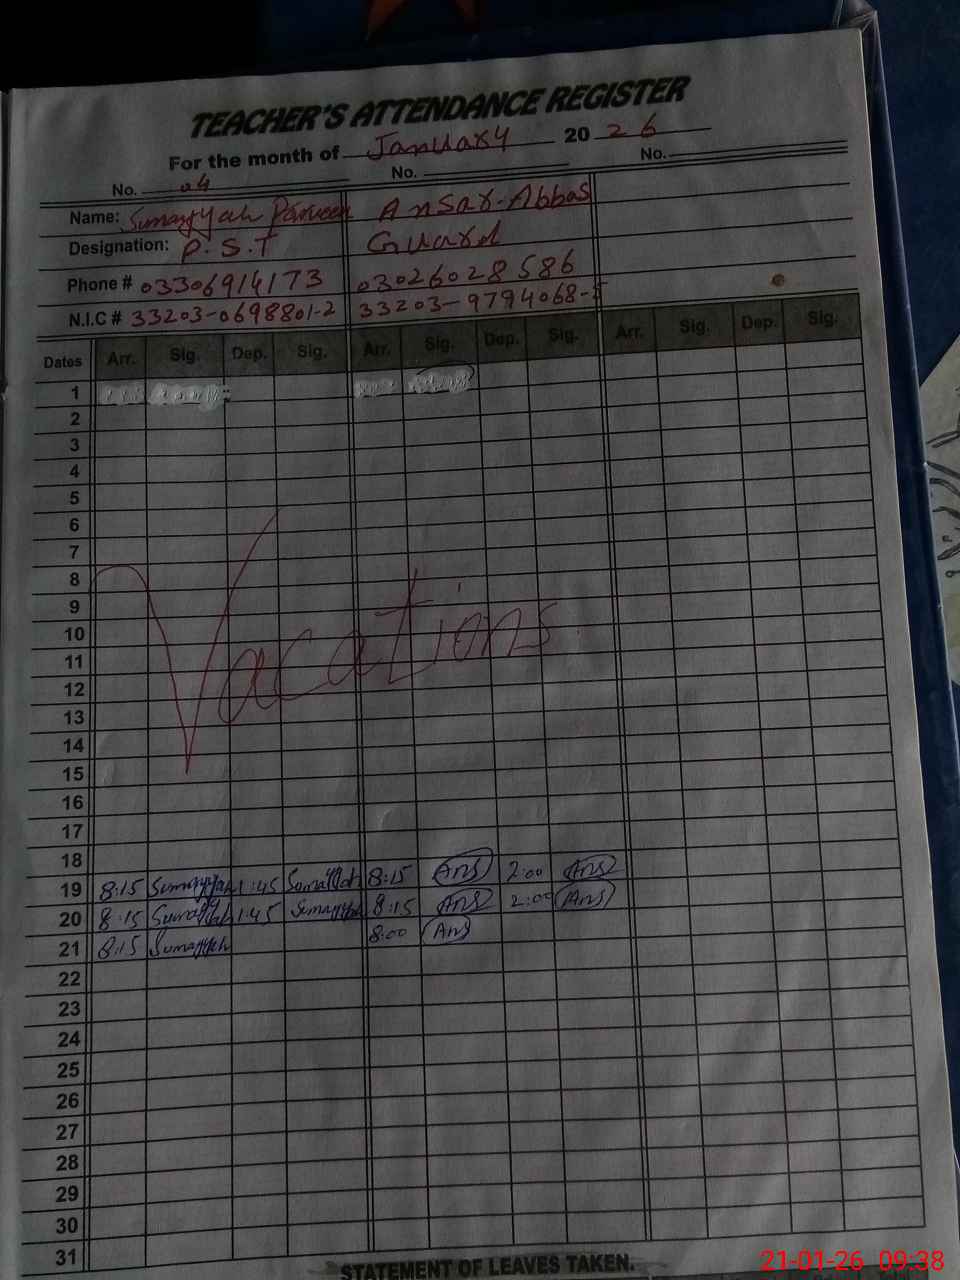 TEACHER'S ATTENDANCE REGISTER
For the month of January 2026
No. 04 No. No.
Name: Sumayyah Parveen Ansar-Abbas
Designation: P.S.T Guard
Phone # 03306914173 03026028586
N.I.C # 33203-0698801-2 33203-9794068-5
Dates Arr. Sig. Dep. Sig. Arr. Sig. Dep. Sig. Arr. Sig. Dep. Sig.
1
2
3
4
5
6
7
8
9
Vacations
10
11
12
13
14
15
16
17
18
19 8:15 Sumayyah 1:45 Sumayyah 8:15 Ans 2:00 Ans
20 8:15 Sumayyah 1:45 Sumayyah 8:15 Ans 2:00 Ans
21 8:15 Sumayyah 8:00 Ans
22
23
24
25
26
27
28
29
30
31
STATEMENT OF LEAVES TAKEN.
21-01-26 09:38